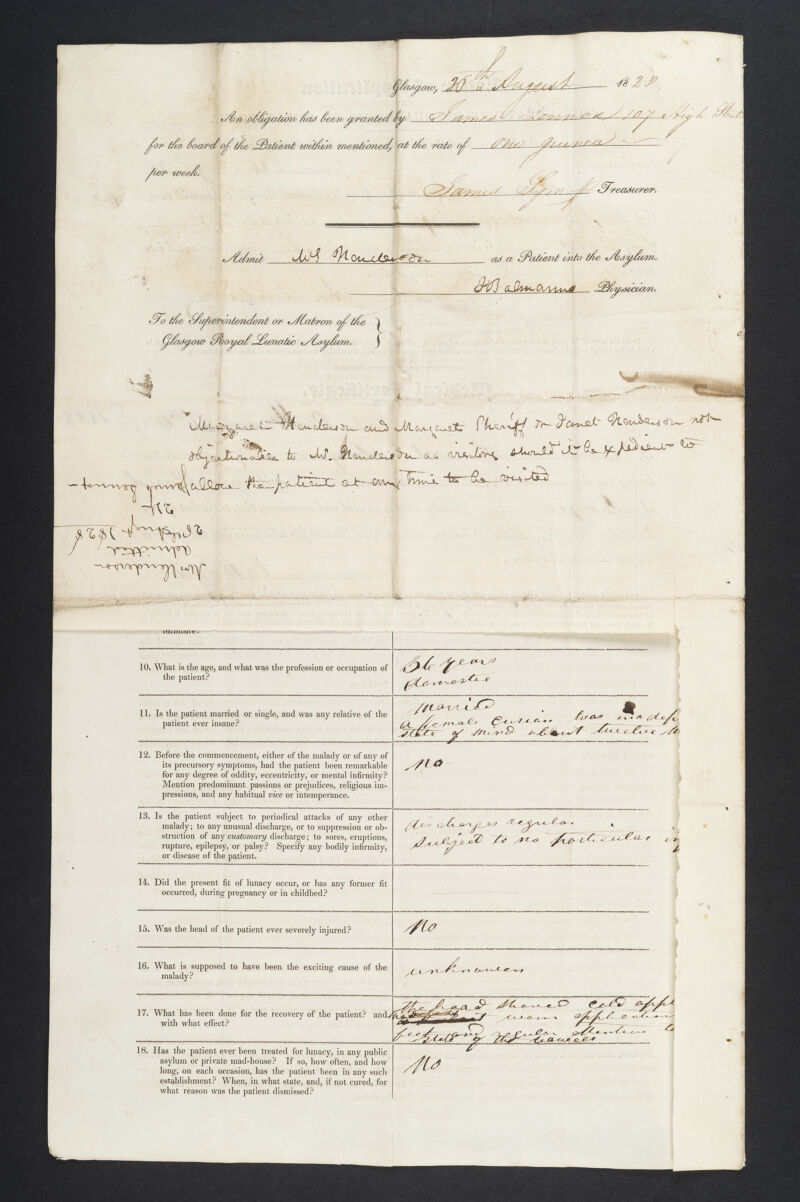 Glasgow, 26th August 1828
An obligation has been granted by James Lennox 107 High Street
for the board of the Patient within mentioned, at the rate of one guinea
per week.
James Treasurer.
Admit Mrs Henderson as a Patient into the Asylum.
JBalmanno Physician.
To the Superintendent or Matron of the
Glasgow Royal Lunatic Asylum.
Margarat Henderson and Margaret Sheriff or Janet Henderson not
objectionable to Mr. Henderson as visitors should it be expedient to
allow the patient at any time to be visited
James Lennox
Mrs Henderson
admitted
26 August 1828
furniture?
10. What is the age, and what was the profession or occupation of
the patient?
36 years
domestic
11. Is the patient married or single, and was any relative of the
patient ever insane?
married
a female cusian was in a
state of mind about twelve
12. Before the commencement, either of the malady or of any of
its precursory symptoms, had the patient been remarkable
for any degree of oddity, eccentricity, or mental infirmity?
Mention predominant passions or prejudices, religious im-
pressions, and any habitual vice or intemperance.
No
13. Is the patient subject to periodical attacks of any other
malady; to any unusual discharge, or to suppression or ob-
struction of any customary discharge; to sores, eruptions,
rupture, epilepsy, or palsy? Specify any bodily infirmity,
or disease of the patient.
discharges regular
subject to no particular
14. Did the present fit of lunacy occur, or has any former fit
occurred, during pregnancy or in childbed?
15. Was the head of the patient ever severely injured?
No
16. What is supposed to have been the exciting cause of the
malady?
unknowen
17. What has been done for the recovery of the patient? and
with what effect?
the head shaved cold appl
warm application
feet and regular attention to
state of the bowels
18. Has the patient ever been treated for lunacy, in any public
asylum or private mad-house? If so, how often, and how
long, on each occasion, has the patient been in any such
establishment? When, in what state, and, if not cured, for
what reason was the patient dismissed?
No